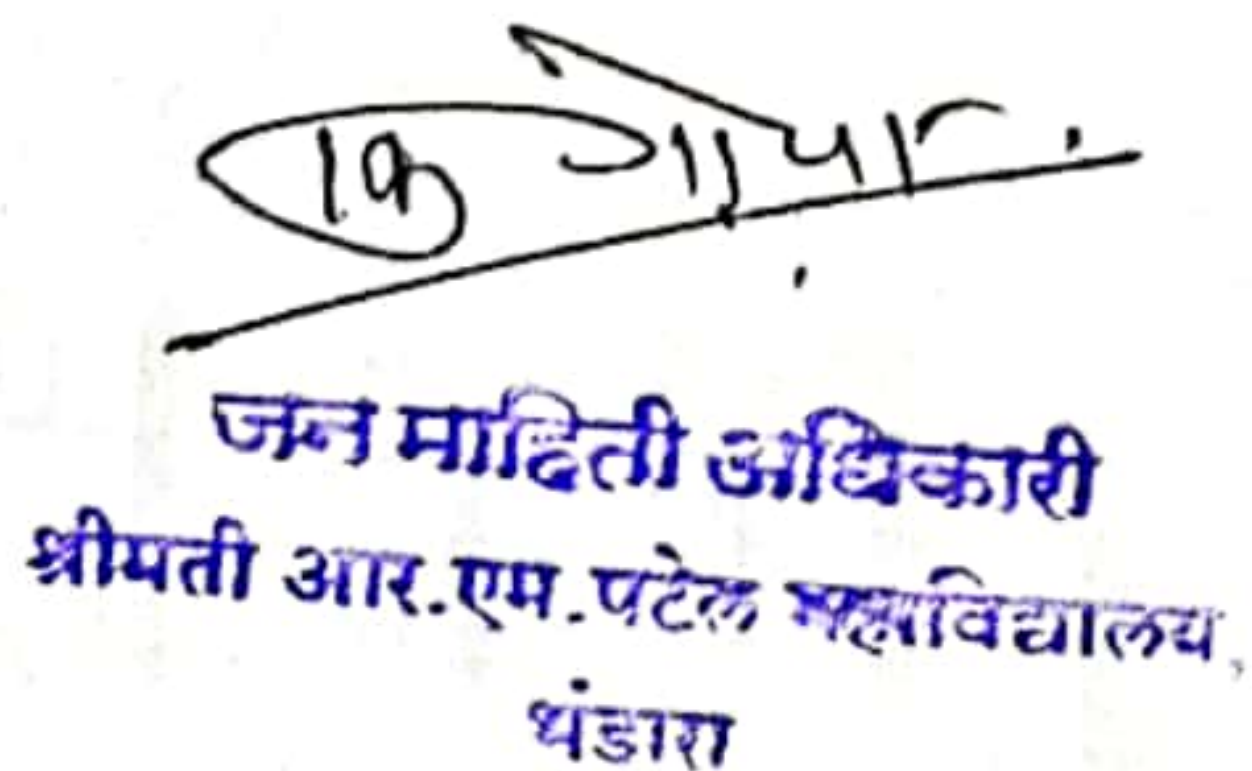 जन माहिती अधिकारी
श्रीमती आर.एम.पटेल महाविद्यालय,
भंडारा